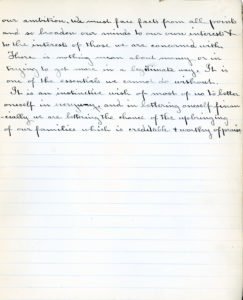 our ambition, we must face facts from all points
and so broaden our minds to our own interests &
to the interests of those we are concerned with.
There is nothing mean about money or in
trying to get more in a legitimate way. It is
one of the essentials we cannot do without.
It is an instinctive wish of most of us to better
oneself in everyway, and in bettering oneself finan-
cially we are bettering the chance of the upbringing
of our families which is creditable & worthy of praise